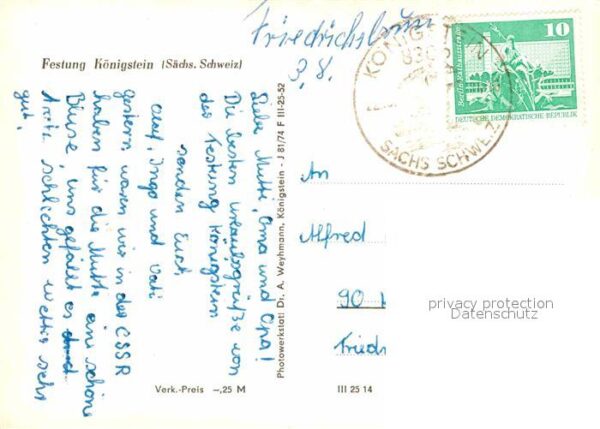 Friedrichsbrunn
3.8.
Festung Königstein (Sächs. Schweiz)
Liebe Mutti, Oma und Opa!
Die besten Urlaubsgrüße von
der Festung Königstein
senden Euch
Olaf, Ingo und Vati
gestern waren wir in der ČSSR
haben für die Mutti ein schöne
Bluse, uns gefällt es
trotz schlechten Wetter sehr
gut.
Photowerkstatt Dr. A. Weyhmann, Königstein - J 81/74 F III-25-52
KÖNIGSTEIN
SÄCHS SCHWEIZ
10
Berlin
DEUTSCHE DEMOKRATISCHE REPUBLIK
An
Alfred
90
Fried
privacy protection
Datenschutz
Verk.-Preis —,25 M
III 25 14